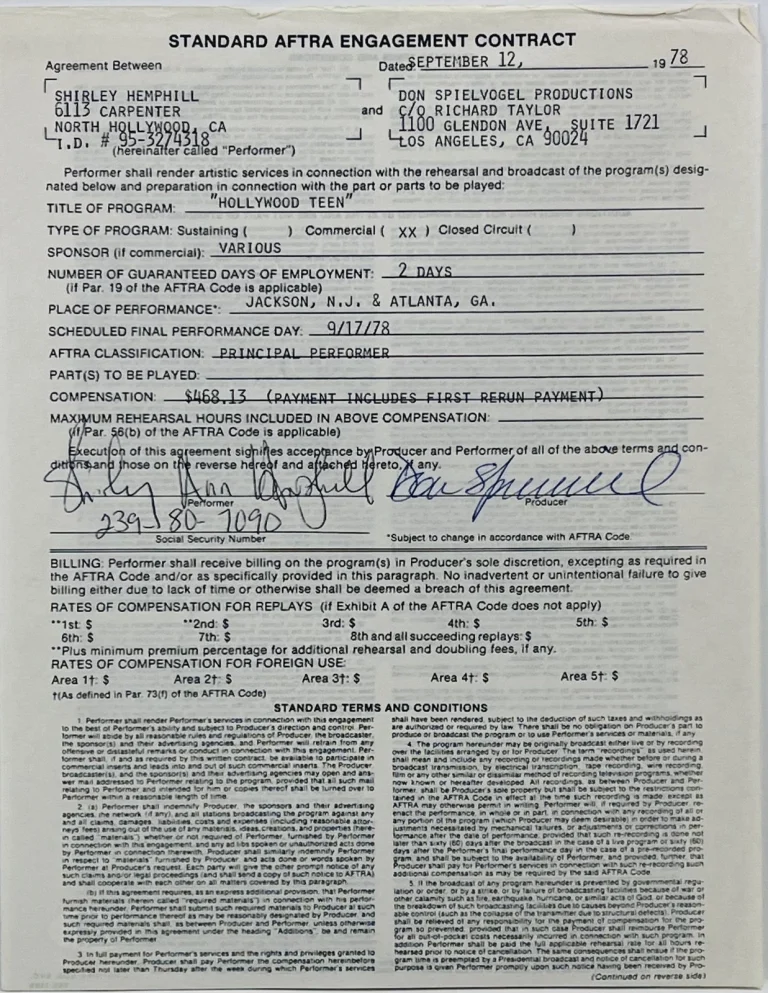 STANDARD AFTRA ENGAGEMENT CONTRACT
Agreement Between Dated SEPTEMBER 12, 1978
SHIRLEY HEMPHILL
6113 CARPENTER
NORTH HOLLYWOOD, CA
I.D. # 95-3274318
(hereinafter called "Performer")
and
DON SPIELVOGEL PRODUCTIONS
C/O RICHARD TAYLOR
1100 GLENDON AVE, SUITE 1721
LOS ANGELES, CA 90024
Performer shall render artistic services in connection with the rehearsal and broadcast of the program(s) desig-
nated below and preparation in connection with the part or parts to be played:
TITLE OF PROGRAM: "HOLLYWOOD TEEN"
TYPE OF PROGRAM: Sustaining ( ) Commercial ( XX ) Closed Circuit ( )
SPONSOR (if commercial): VARIOUS
NUMBER OF GUARANTEED DAYS OF EMPLOYMENT: 2 DAYS
(if Par. 19 of the AFTRA Code is applicable)
PLACE OF PERFORMANCE*: JACKSON, N.J. & ATLANTA, GA.
SCHEDULED FINAL PERFORMANCE DAY: 9/17/78
AFTRA CLASSIFICATION: PRINCIPAL PERFORMER
PART(S) TO BE PLAYED:
COMPENSATION: $468.13 (PAYMENT INCLUDES FIRST RERUN PAYMENT)
MAXIMUM REHEARSAL HOURS INCLUDED IN ABOVE COMPENSATION:
(if Par. 56(b) of the AFTRA Code is applicable)
Execution of this agreement signifies acceptance by Producer and Performer of all of the above terms and con-
ditions and those on the reverse hereof and attached hereto, if any.
Shirley Ann Hemphill
Performer Producer
239-80-7090
Social Security Number *Subject to change in accordance with AFTRA Code.
BILLING: Performer shall receive billing on the program(s) in Producer's sole discretion, excepting as required in
the AFTRA Code and/or as specifically provided in this paragraph. No inadvertent or unintentional failure to give
billing either due to lack of time or otherwise shall be deemed a breach of this agreement.
RATES OF COMPENSATION FOR REPLAYS (if Exhibit A of the AFTRA Code does not apply)
**1st: $ **2nd: $ 3rd: $ 4th: $ 5th: $
6th: $ 7th: $ 8th and all succeeding replays: $
**Plus minimum premium percentage for additional rehearsal and doubling fees, if any.
RATES OF COMPENSATION FOR FOREIGN USE:
Area 1†: $ Area 2†: $ Area 3†: $ Area 4†: $ Area 5†: $
†(As defined in Par. 73(f) of the AFTRA Code)
STANDARD TERMS AND CONDITIONS
1. Performer shall render Performer's services in connection with this engagement
to the best of Performer's ability and subject to Producer's direction and control. Per-
former will abide by all reasonable rules and regulations of Producer, the broadcaster,
the sponsor(s) and their advertising agencies, and Performer will refrain from any
offensive or distasteful remarks or conduct in connection with this engagement. Per-
former shall, if and as required by this written contract, be available to participate in
commercial inserts and leads into and out of such commercial inserts. The Producer,
broadcaster(s), and the sponsor(s) and their advertising agency may open and ans-
wer mail addressed to Performer relating to the program, provided that all such mail
relating to Performer and intended for him or copies thereof shall be turned over to
Performer within a reasonable length of time.
2. (a) Performer shall indemnify Producer, the sponsors and their advertising
agencies, the network (if any), and all stations broadcasting the program against any
and all claims, damages, liabilities, costs and expenses (including reasonable attor-
neys fees) arising out of the use of any materials, ideas, creations, and properties (here-
in called "materials"), whether or not required of Performer, furnished by Performer
in connection with this engagement, and any ad libs spoken or unauthorized acts done
by Performer in connection therewith, Producer shall similarly indemnify Performer
in respect to "materials" furnished by Producer, and acts done or words spoken by
Performer at Producer's request. Each party will give the other prompt notice of any
such claims and/or legal proceedings (and shall send a copy of such notice to AFTRA)
and shall cooperate with each other on all matters covered by this paragraph.
(b) If this agreement requires, as an express additional provision, that Performer
furnish materials (herein called "required materials") in connection with his perfor-
mance hereunder, Performer shall submit required materials to Producer at such
time prior to performance thereof as may be reasonably designated by Producer, and
such required materials shall, as between Producer and Performer, unless otherwise
expressly provided in this agreement under the heading "Additions", be and remain
the property of Performer.
3. In full payment for Performer's services and the rights and privileges granted to
Producer hereunder, Producer shall pay Performer the compensation hereinbefore
specified not later than Thursday after the week during which Performer's services
shall have been rendered, subject to the deduction of such taxes and withholdings as
are authorized or required by law. There shall be no obligation on Producer's part to
produce or broadcast the program or to use Performer's services or materials, if any.
4. The program hereunder may be originally broadcast either live or by recording
over the facilities arranged by or for Producer. The term "recordings" as used herein,
shall mean and include any recording or recordings made whether before or during a
broadcast transmission, by electrical transcription, tape recording, wire recording,
film or any other similar or dissimilar method of recording television programs, whether
now known or hereafter developed. All recordings, as between Producer and Per-
former, shall be Producer's sole property but shall be subject to the restrictions con-
tained in the AFTRA Code in effect at the time such recording is made except as
AFTRA may otherwise permit in writing. Performer will, if required by Producer, re-
enact the performance, in whole or in part, in connection with any recording of all or
any portion of the program (which Producer may deem desirable) in order to make ad-
justments necessitated by mechanical failures, or adjustments or corrections in per-
formance after the date of performance, provided that such re-recording is done not
later than sixty (60) days after the broadcast in the case of a live program or sixty (60)
days after the Performer's final performance day in the case of a pre-recorded pro-
gram, and shall be subject to the availability of Performer, and provided, further, that
Producer shall pay for Performer's services in connection with such re-recording such
additional compensation as may be required by the said AFTRA Code.
5. If the broadcast of any program hereunder is prevented by governmental regu-
lation or order, or by a strike, or by failure of broadcasting facilities because of war or
other calamity such as fire, earthquake, hurricane, or similar acts of God, or because of
the breakdown of such broadcasting facilities due to causes beyond Producer's reason-
able control (such as the collapse of the transmitter due to structural defects), Producer
shall be relieved of any responsibility for the payment of compensation for the pro-
gram so prevented, provided that in such case Producer shall reimburse Performer
for all out-of-pocket costs necessarily incurred in connection with such program. In
addition Performer shall be paid the full applicable rehearsal rate for all hours re-
hearsed prior to notice of cancellation. The same consequences shall ensue if the pro-
gram time is preempted by a Presidential broadcast and notice of cancellation for such
purpose is given Performer promptly upon such notice having been received by Pro-
(Continued on reverse side)